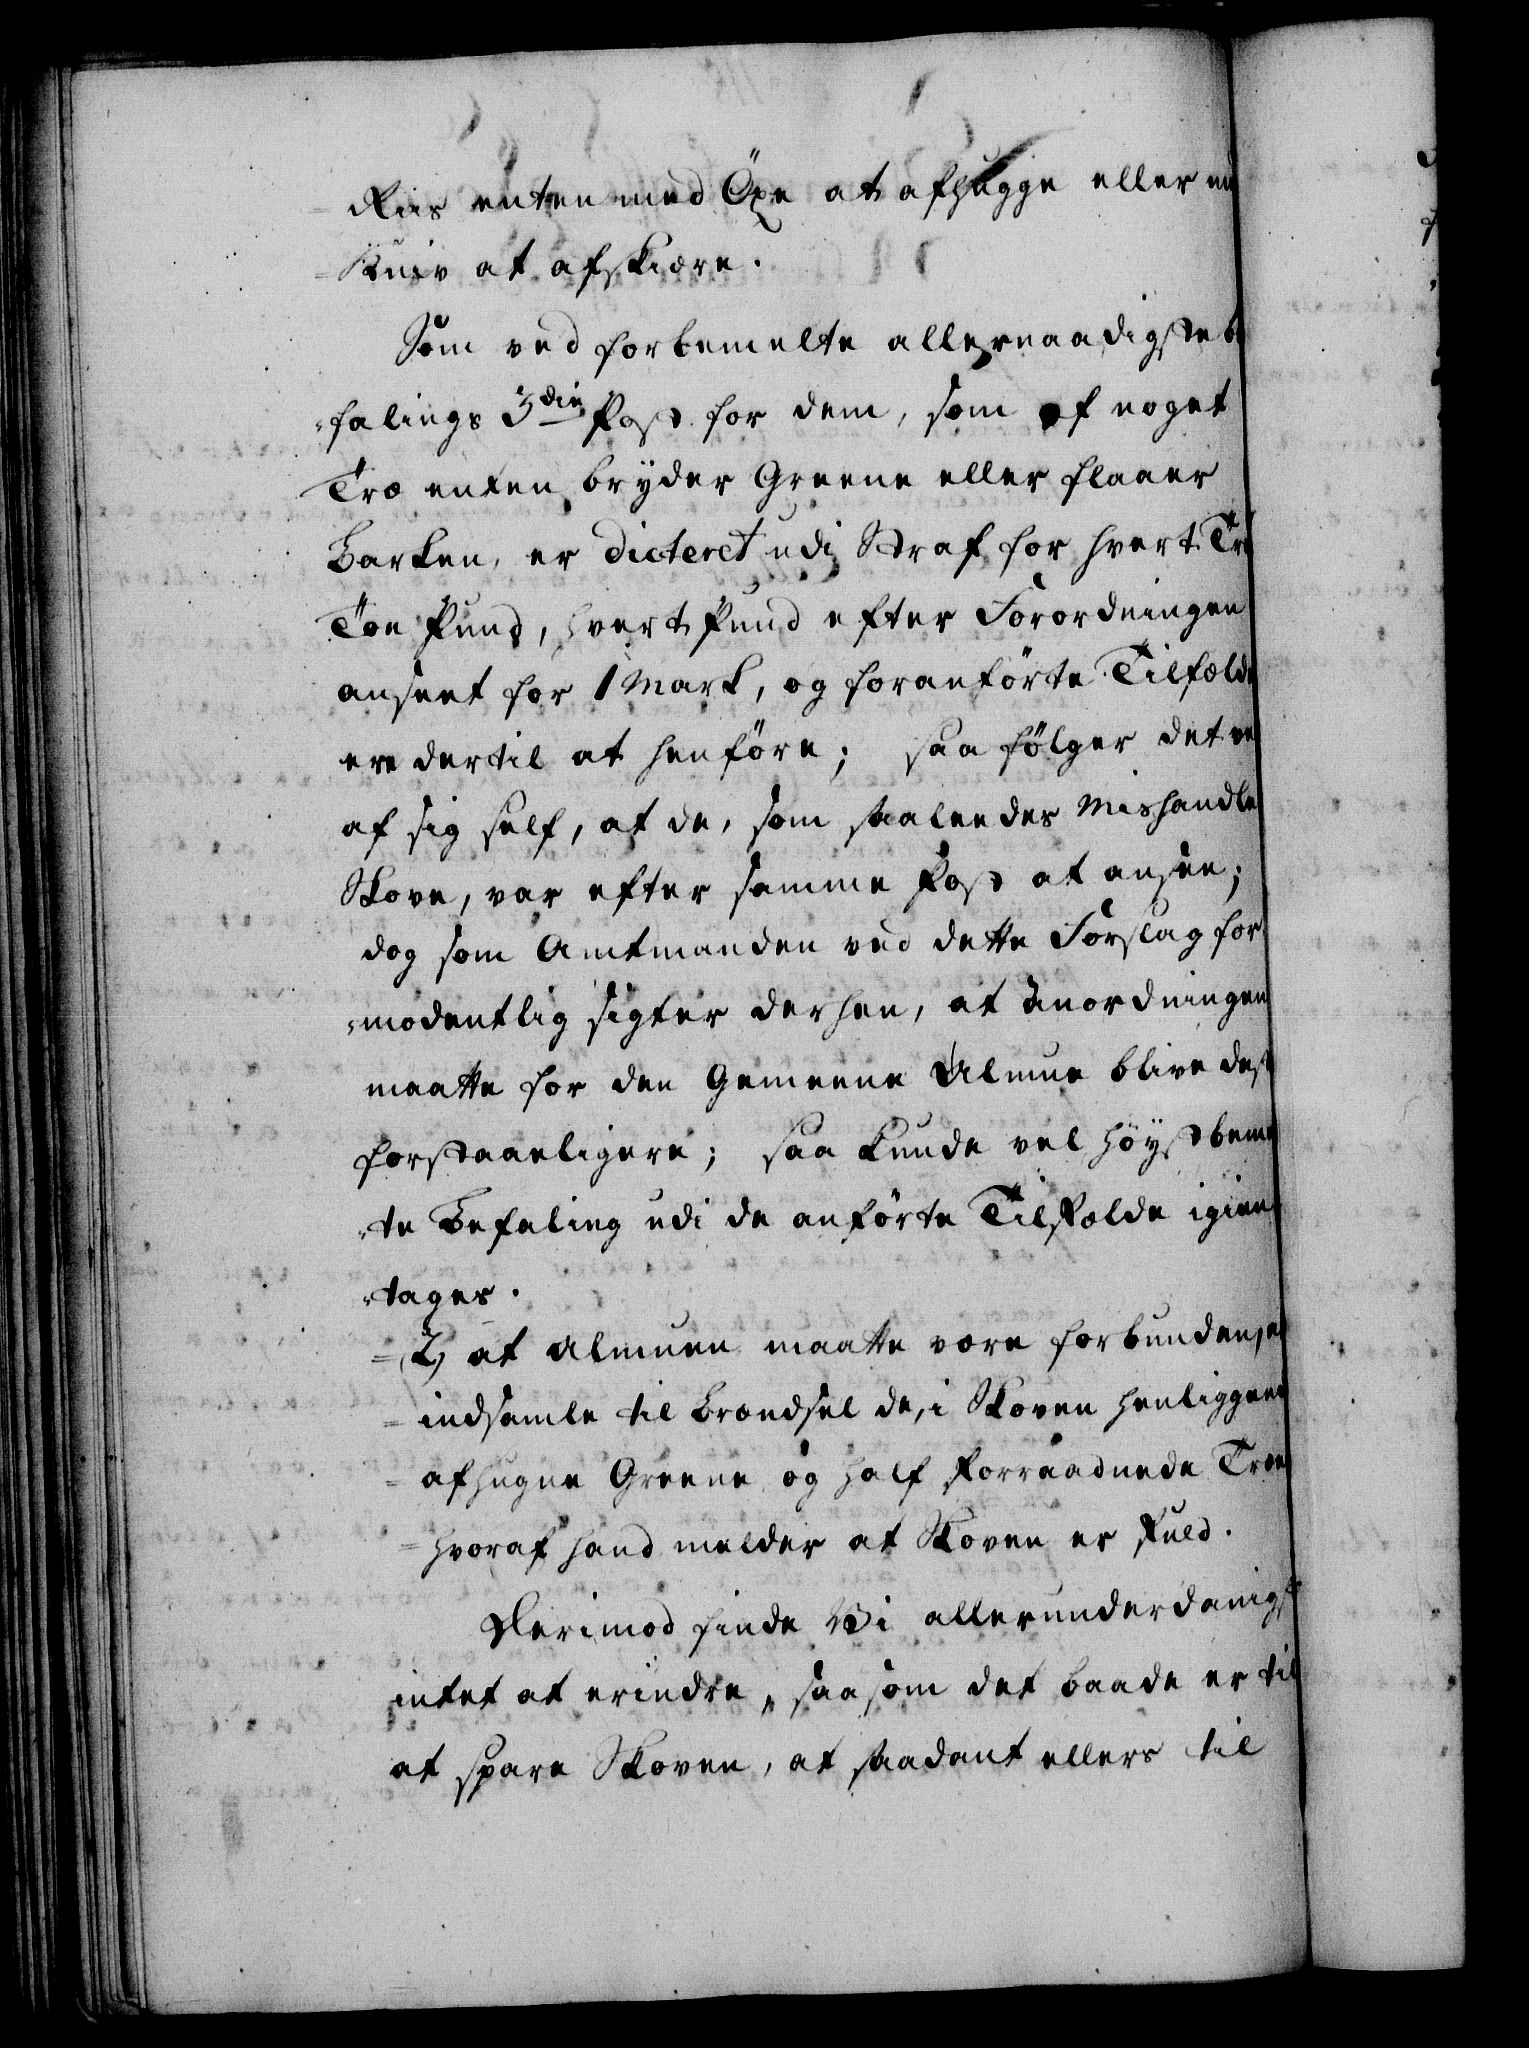 = Riis enten med Öxe at afhugge eller m
= Kniv at afskiære.
Som ved forbemelte allernaadigste be
-falings 3die Post for dem, som af noget
Træ enten bryder Greene eller flaaer
Barken, er dicteret udi Straf for hvert Træ
Toe Pund, hvert Pund efter Forordningen
anseet for 1 Mark, og foranførte Tilfælde
ere dertil at henföre; saa fölger det ve
af sig self, at de, som saaleedes Mishandle
Skove, var efter samme Post at ansee;
dog som Amtmanden ved dette Forslag for
-modentlig sigter derhen, at Anordningen
maatte for den Gemeene Almue blive dest
forstaaeligere; saa kunde vel höystbemel
-te Befaling udi de anförte Tilfælde igien
-tages.
= 2) at Almuen maatte være forbunden, a
= indsamle til Brændsel de, i Skoven henliggen
= afhugne Greene og half forraadnede Træe
= hvoraf hand melder at Skoven er fuld.
Herimod finde Vi allerunderdanigst
intet at erindre, saasom det baade er til
at spare Skoven, at saadant ellers til